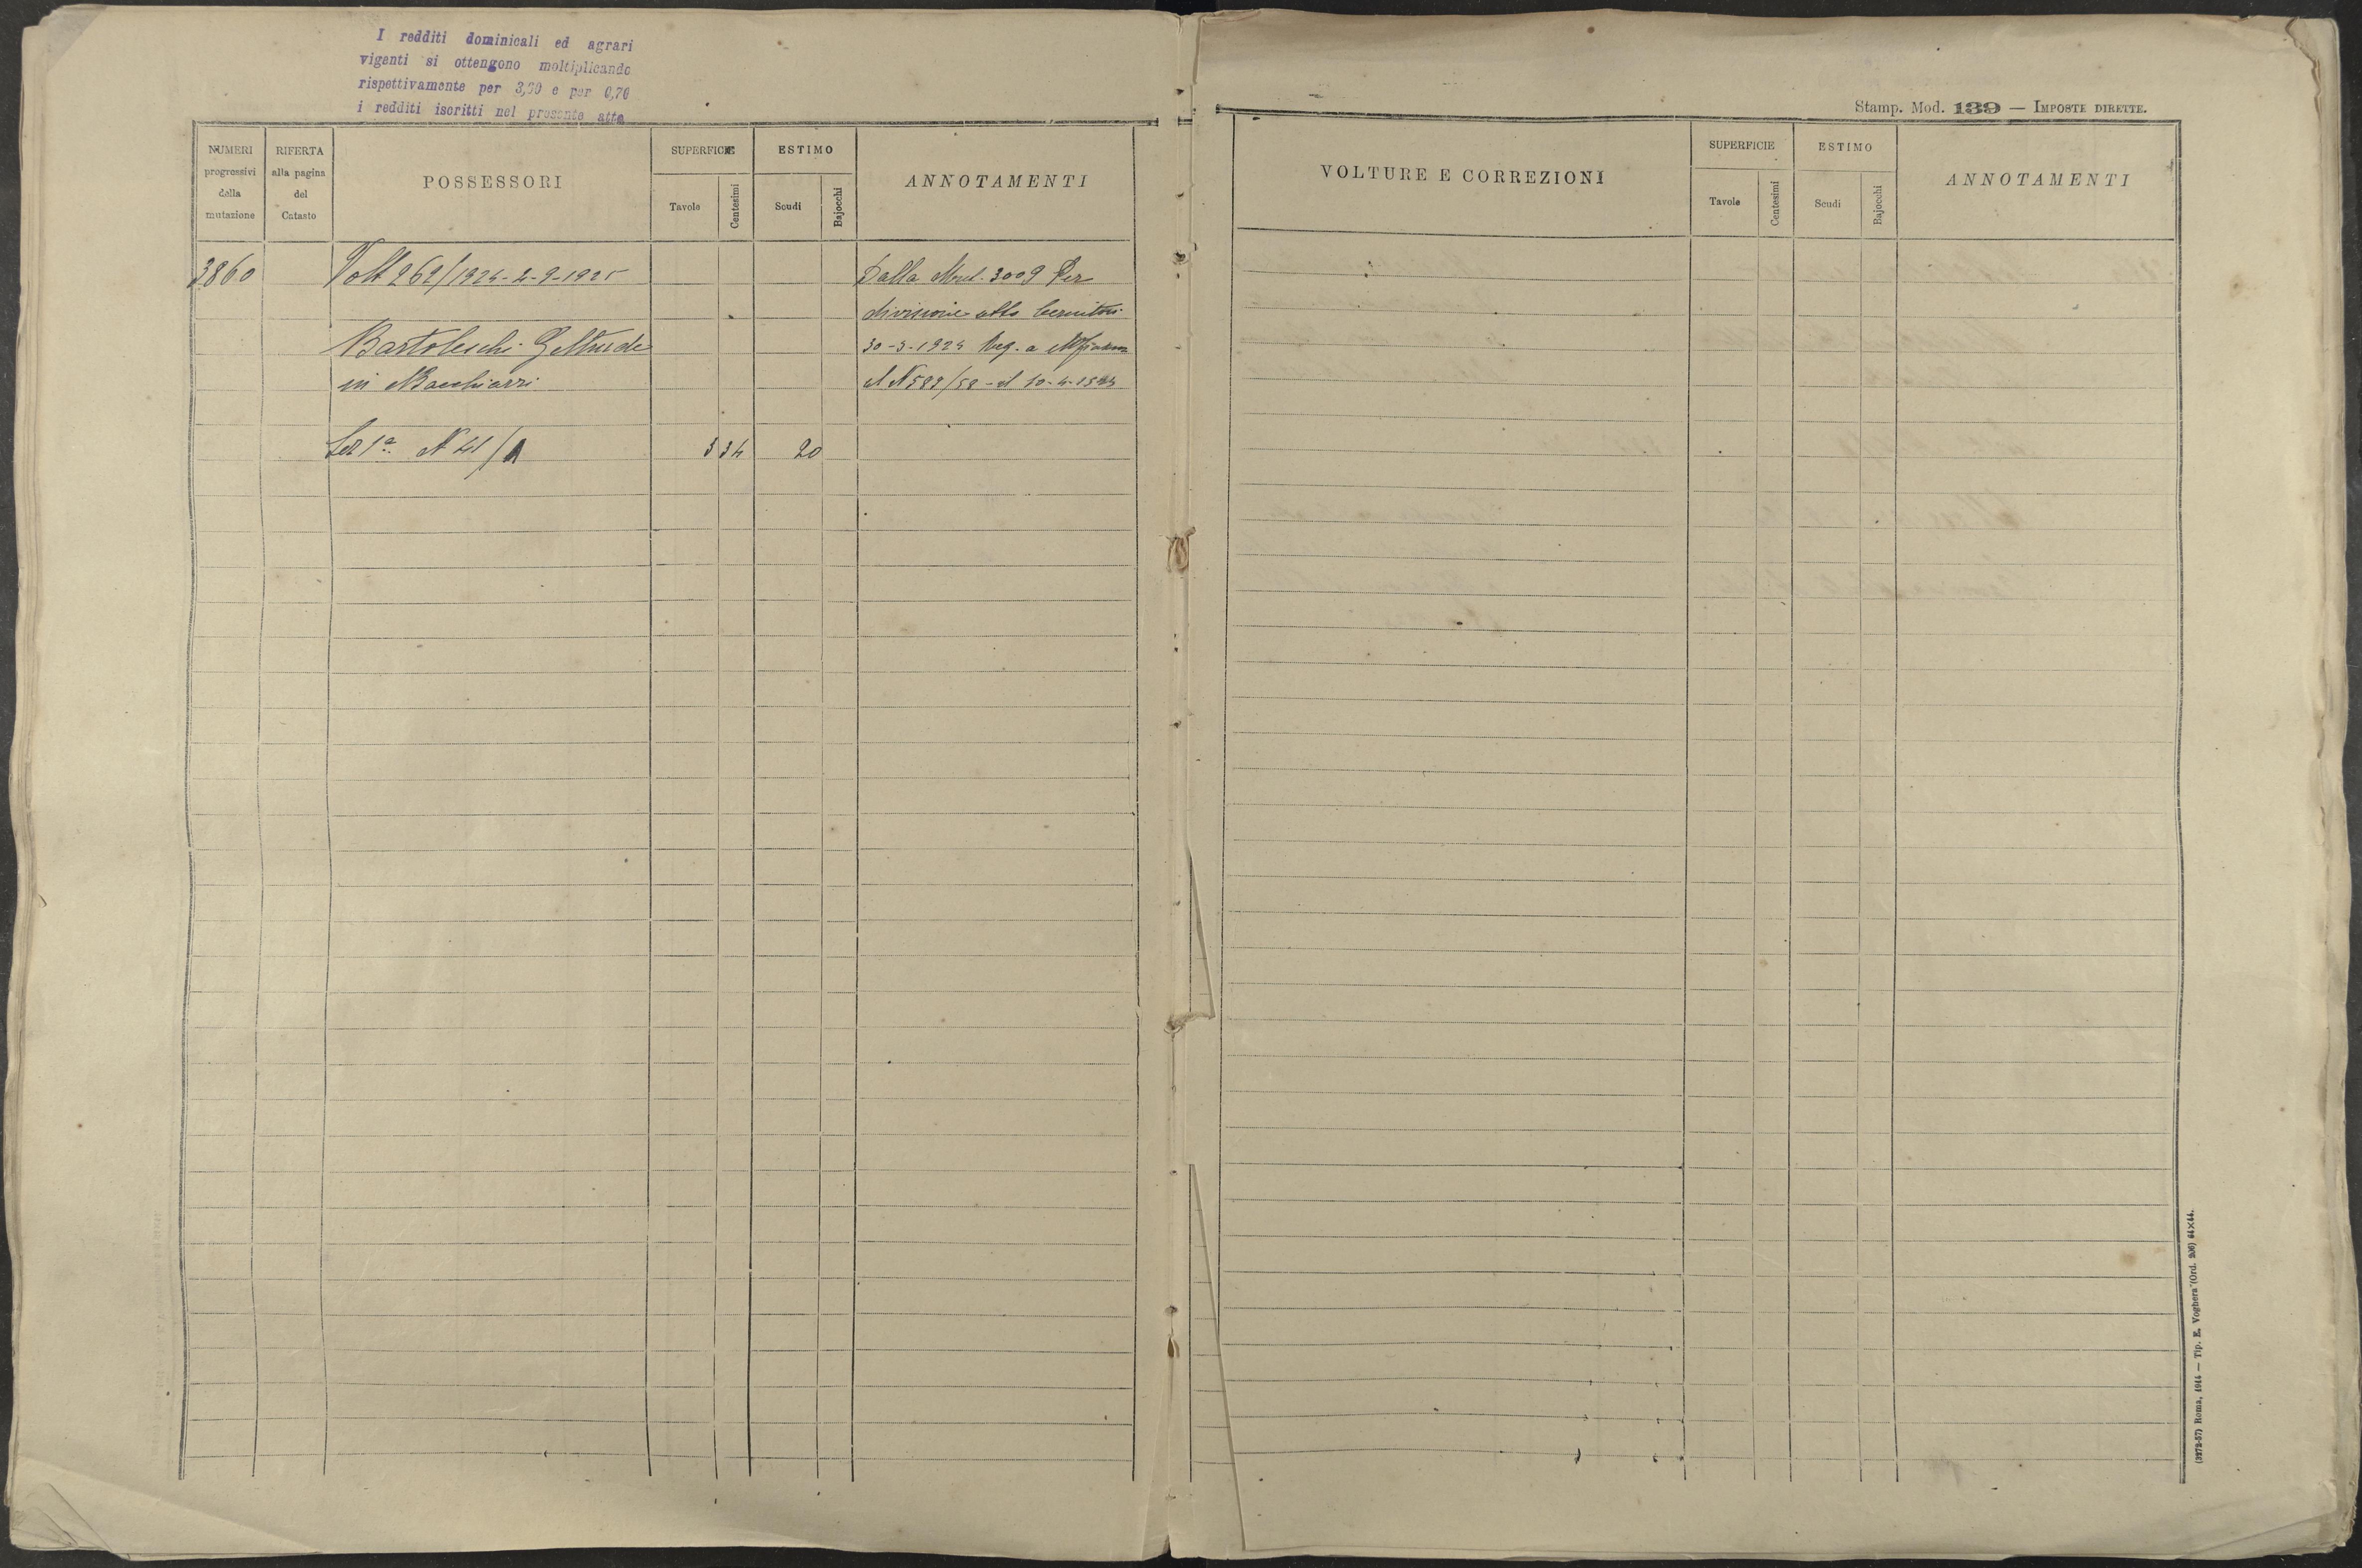 I redditi dominicali ed agrari
viganti si ottengono moltiplicando
rispettivamente per 3,30 e per 0,70
i redditi iscritti nel presente atto
Stamp. Mod. 139 — IMPOSTE DIRETTE.
NUMERI
progressivi
della
mutazione
RIFERTA
alla pagina
del
Catasto
POSSESSORI
SUPERFICIE
Tavole
Centesimi
ESTIMO
Scudi
Bajocchi
ANNOTAMENTI
VOLTURE E CORREZIONI
SUPERFICIE
Tavole
Centesimi
ESTIMO
Scudi
Bajocchi
ANNOTAMENTI
3860
Volt 262/1924-2-9-1925
Dalla 3009 Per
divisione atto
Bartoleschi Geltrude
30-3-1924 Reg. a
in Macchiarri
il N 589/58 - il 10-4-1924
Sez 1ª N 41/
3 34 20
(3272-57) Roma, 1914 — Tip. E. Voghera (Ord. 206) 64×44.